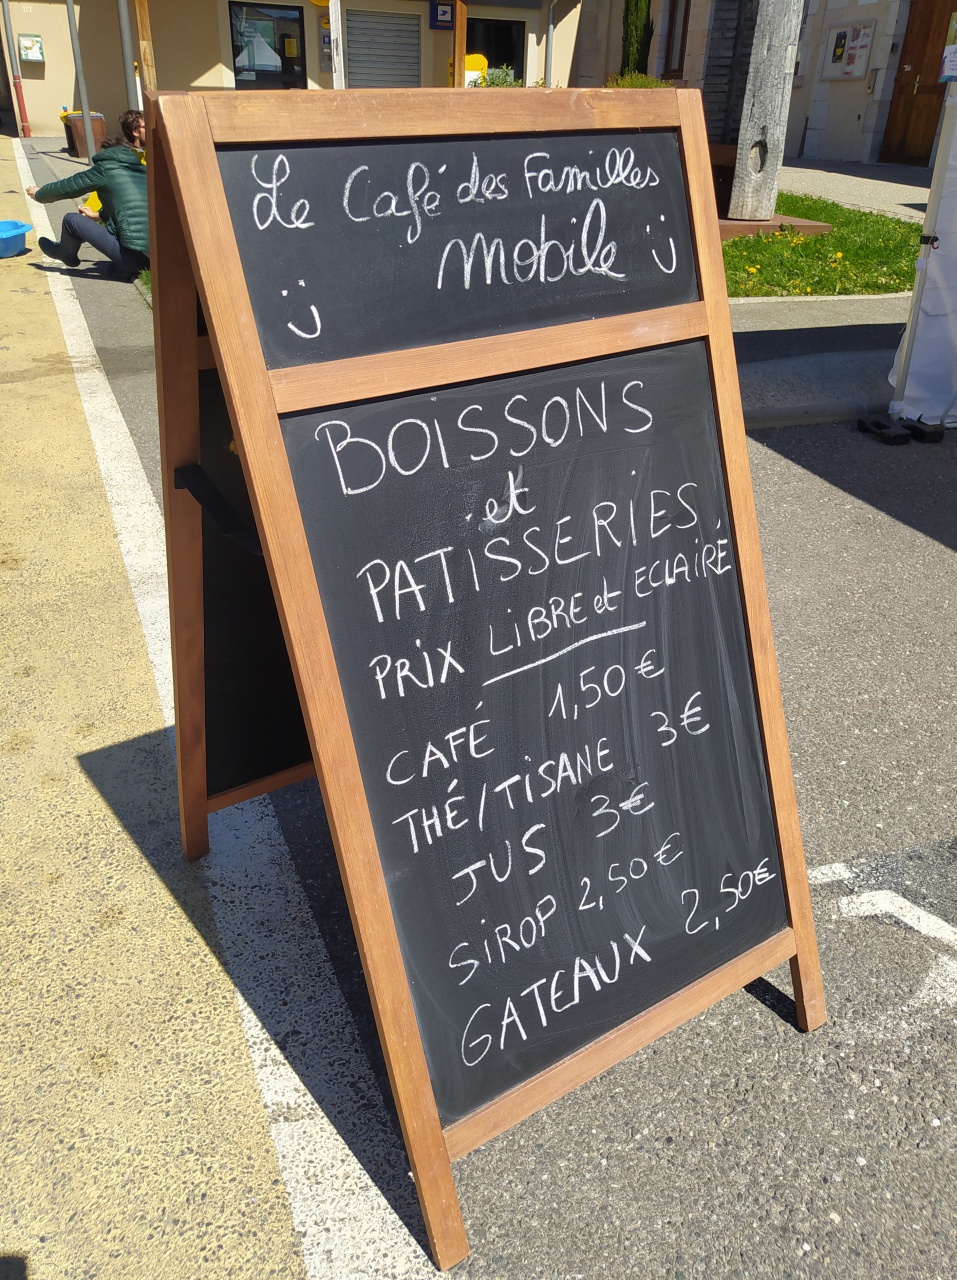 Le Café des Familles
mobile
BOISSONS
et
PATISSERIES
PRIX LIBRE et ECLAIRÉ
CAFÉ 1,50€
THÉ/TISANE 3€
JUS 3€
SIROP 2,50€
GATEAUX 2,50€